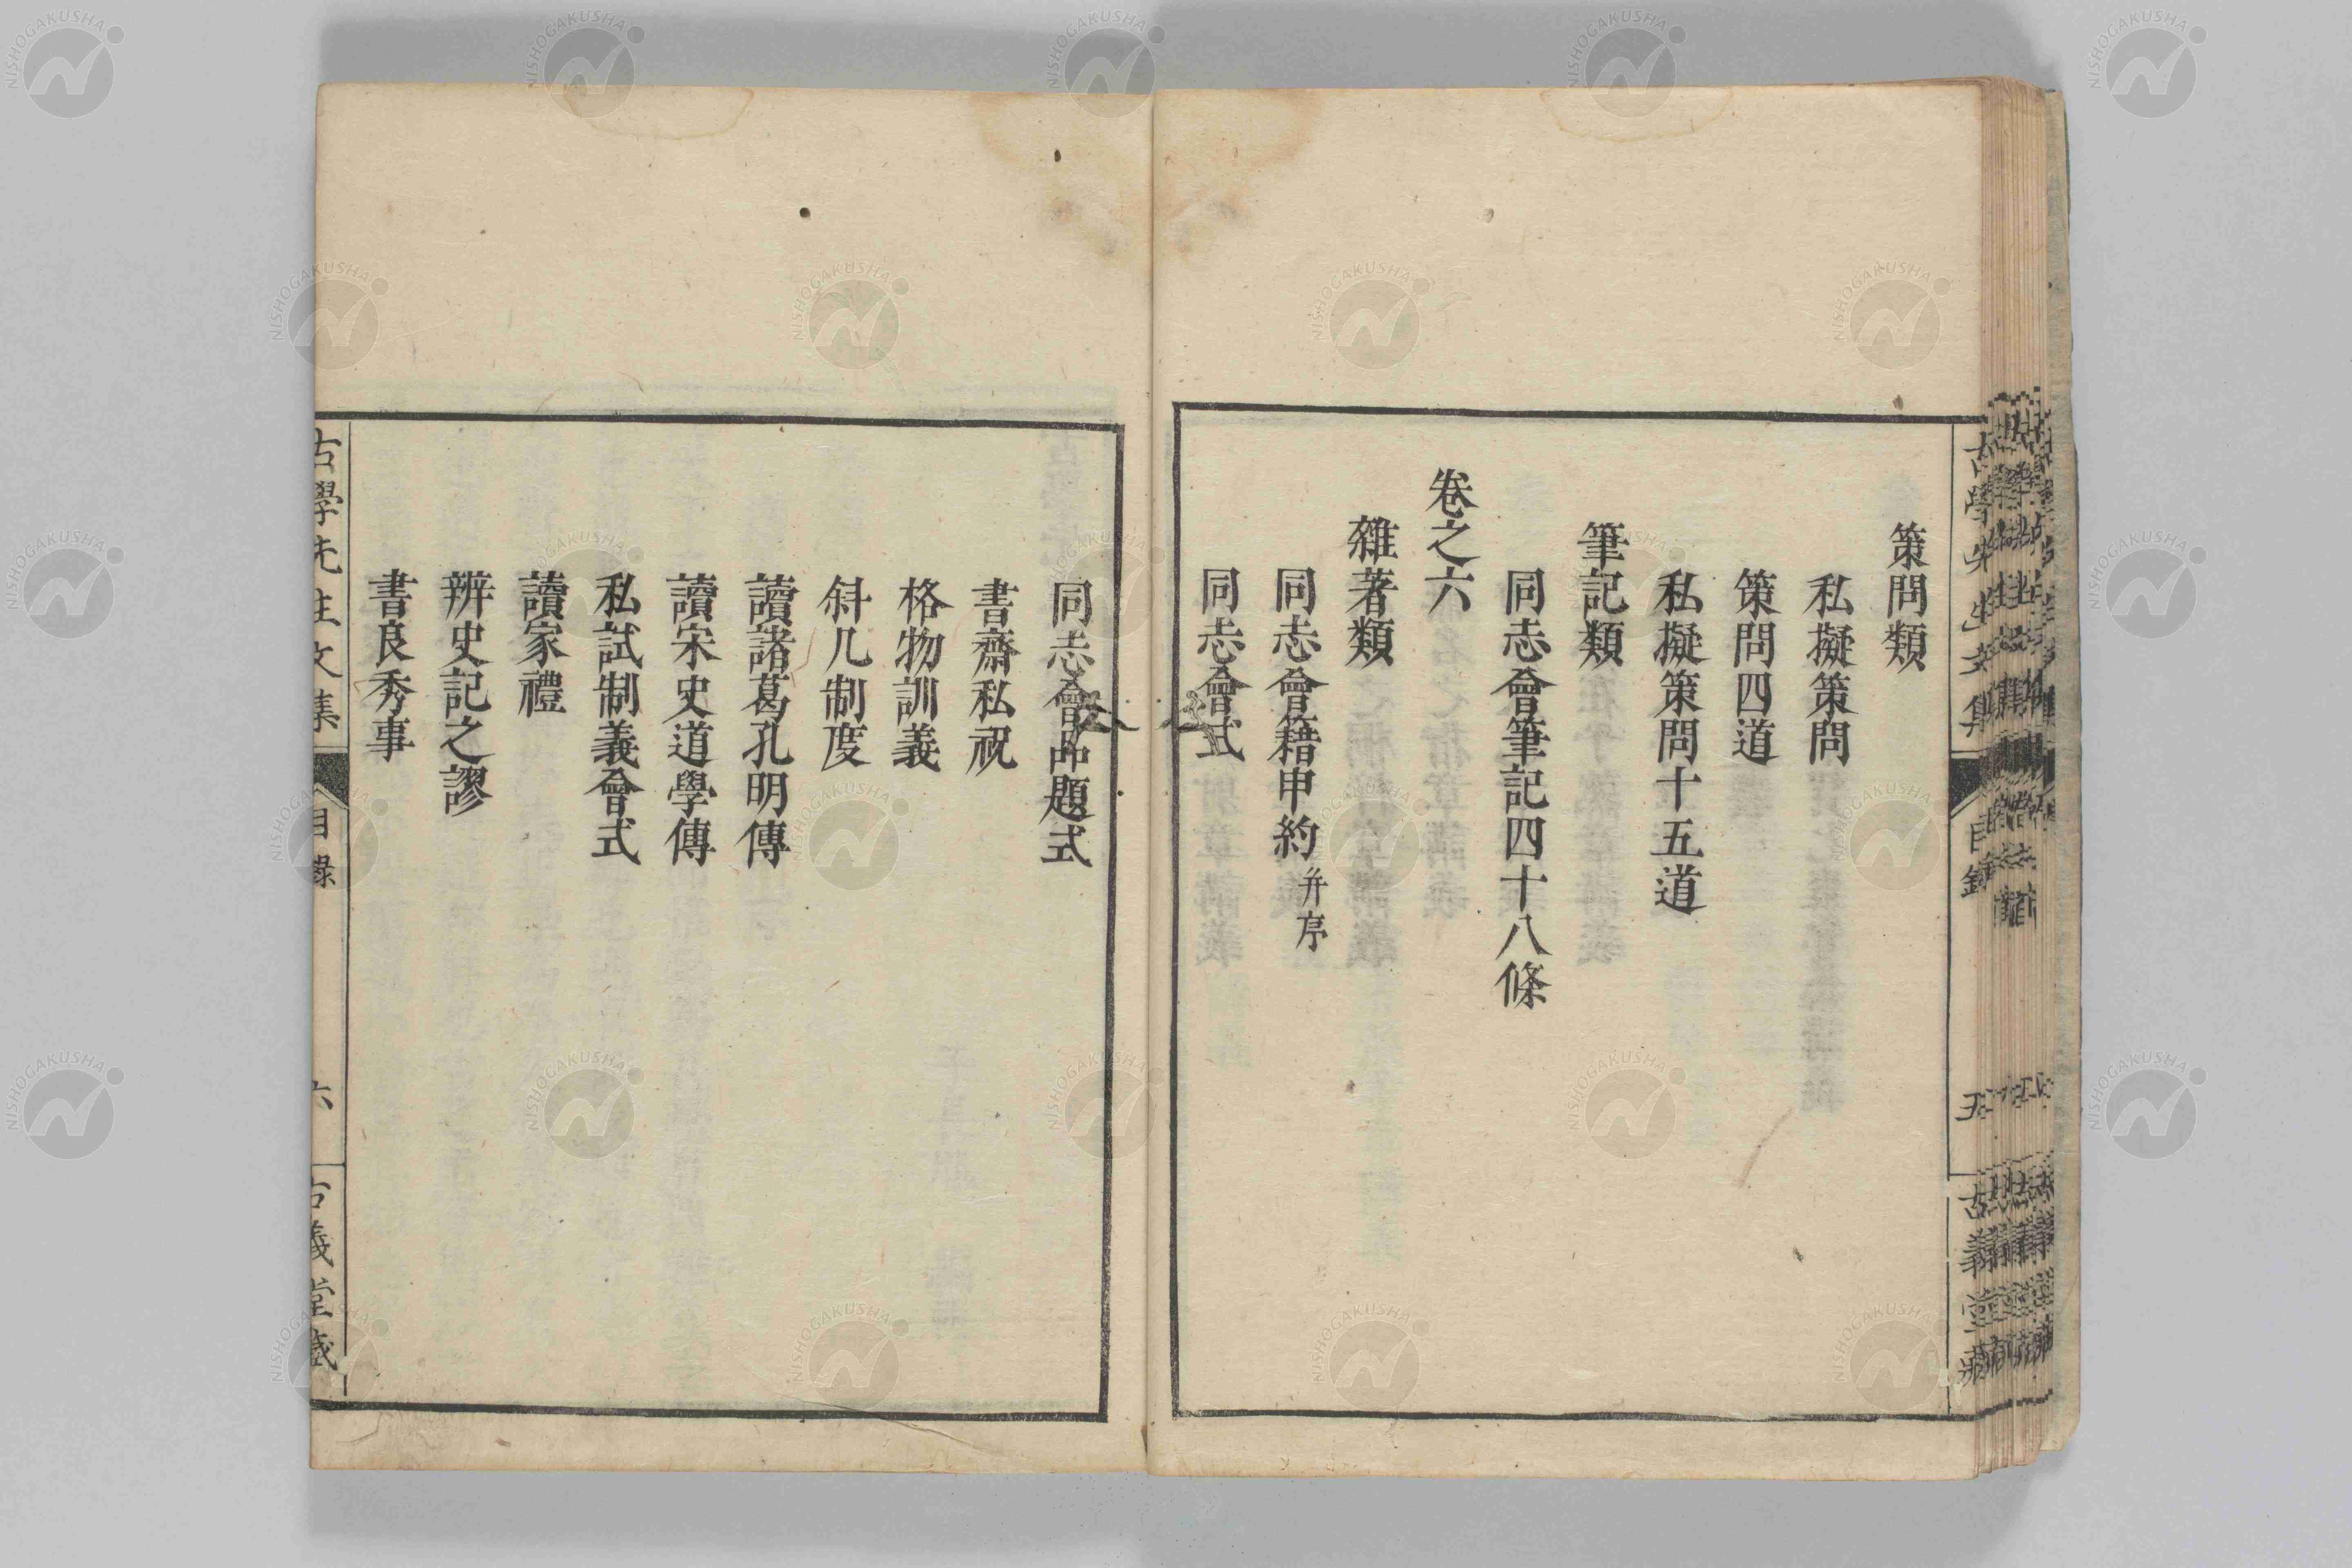 策問類
私擬策問
策問四道
私擬策問十五道
筆記類
同志會筆記四十八條
卷之六
雜著類
同志會籍申約 并序
同志會式
古學先生文集 目錄 五 古義堂藏
同志會品題式
書齋私祝
格物訓義
斜几制度
讀諸葛孔明傳
讀宋史道學傳
私試制義會式
讀家禮
辨史記之謬
書良秀事
古學先生文集 目錄 六 古義堂藏
NISHOGAKUSHA